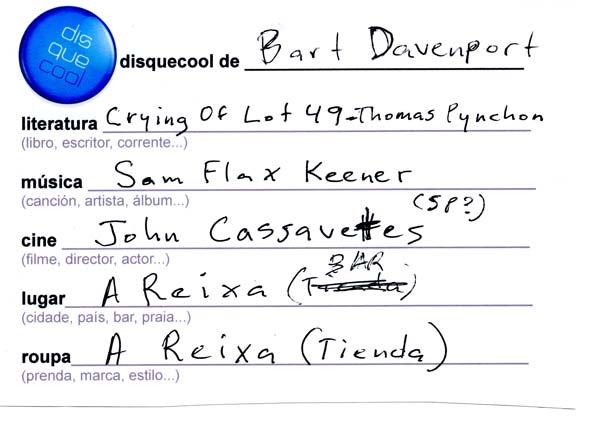 dis
que
cool
disquecool de Bart Davenport
literatura Crying Of Lot 49-Thomas Pynchon
(libro, escritor, corrente...)
música Sam Flax Keener
(canción, artista, álbum...)
(SP?)
cine John Cassavettes
(filme, director, actor...)
BAR
lugar A Reixa (Tienda)
(cidade, país, bar, praia...)
roupa A Reixa (Tienda)
(prenda, marca, estilo...)